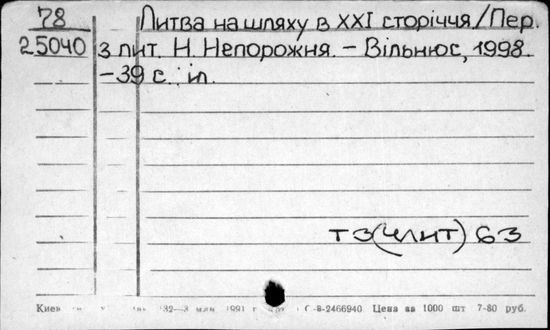 78
25040
Литва на шляху в XXI сторіччя/Пер.
з лит. Н. Непорожня. – Вільнюс, 1998.
– 39 с.: іл.
Т3(4Лит) 63
Киев 32—3 млн. 1991 г. С-8-2466940 Цена за 1000 шт 7-80 руб.